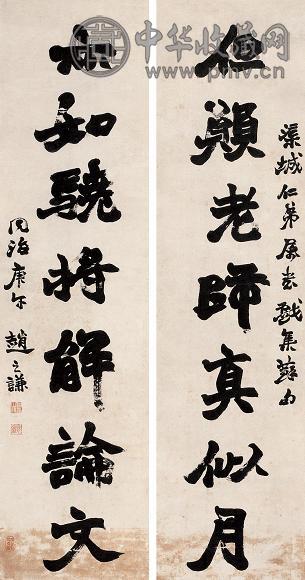 中华收藏网
www.pmv.cn
但願老師真似月
渠城仁弟屬書戲集蘇句
知驍將解論文
同治庚午
趙之謙